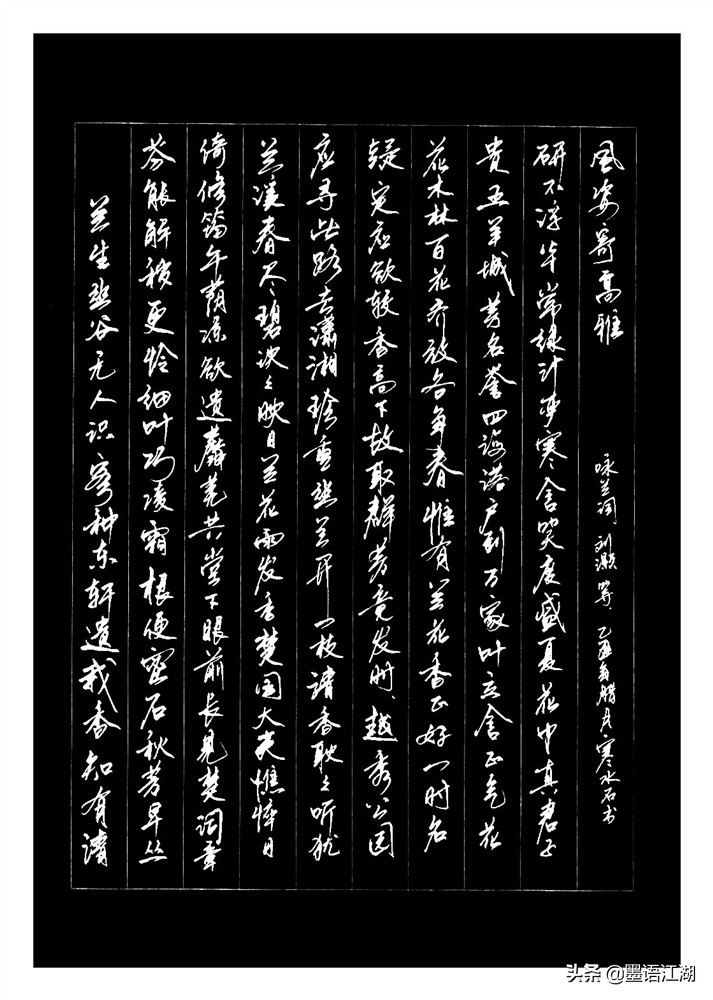 兰生幽谷无人识客种东轩遗我香知有清
芬能解秽更怜细叶巧凌霜根便密石秋芳早丛
倚修筠午荫凉欲遗蘼芜共堂下眼前长见楚词章
兰溪春尽碧泱々映日兰花雨发香楚国大夫憔悴日
应寻此路去潇湘珍重幽兰开一枝清香耿々听犹
疑定应欲较香高下故取群芳竞发时越秀公园
花木林百花齐放各争春惟有兰花香正好一时名
贵五羊城芳名誉四海落户到万家叶立含正气花
研不浮华常绿斗严寒含笑度盛夏花中真君子
风姿寄高雅
咏兰词 刘灏等、乙酉年腊月、寒水石书
头条 @墨语江湖